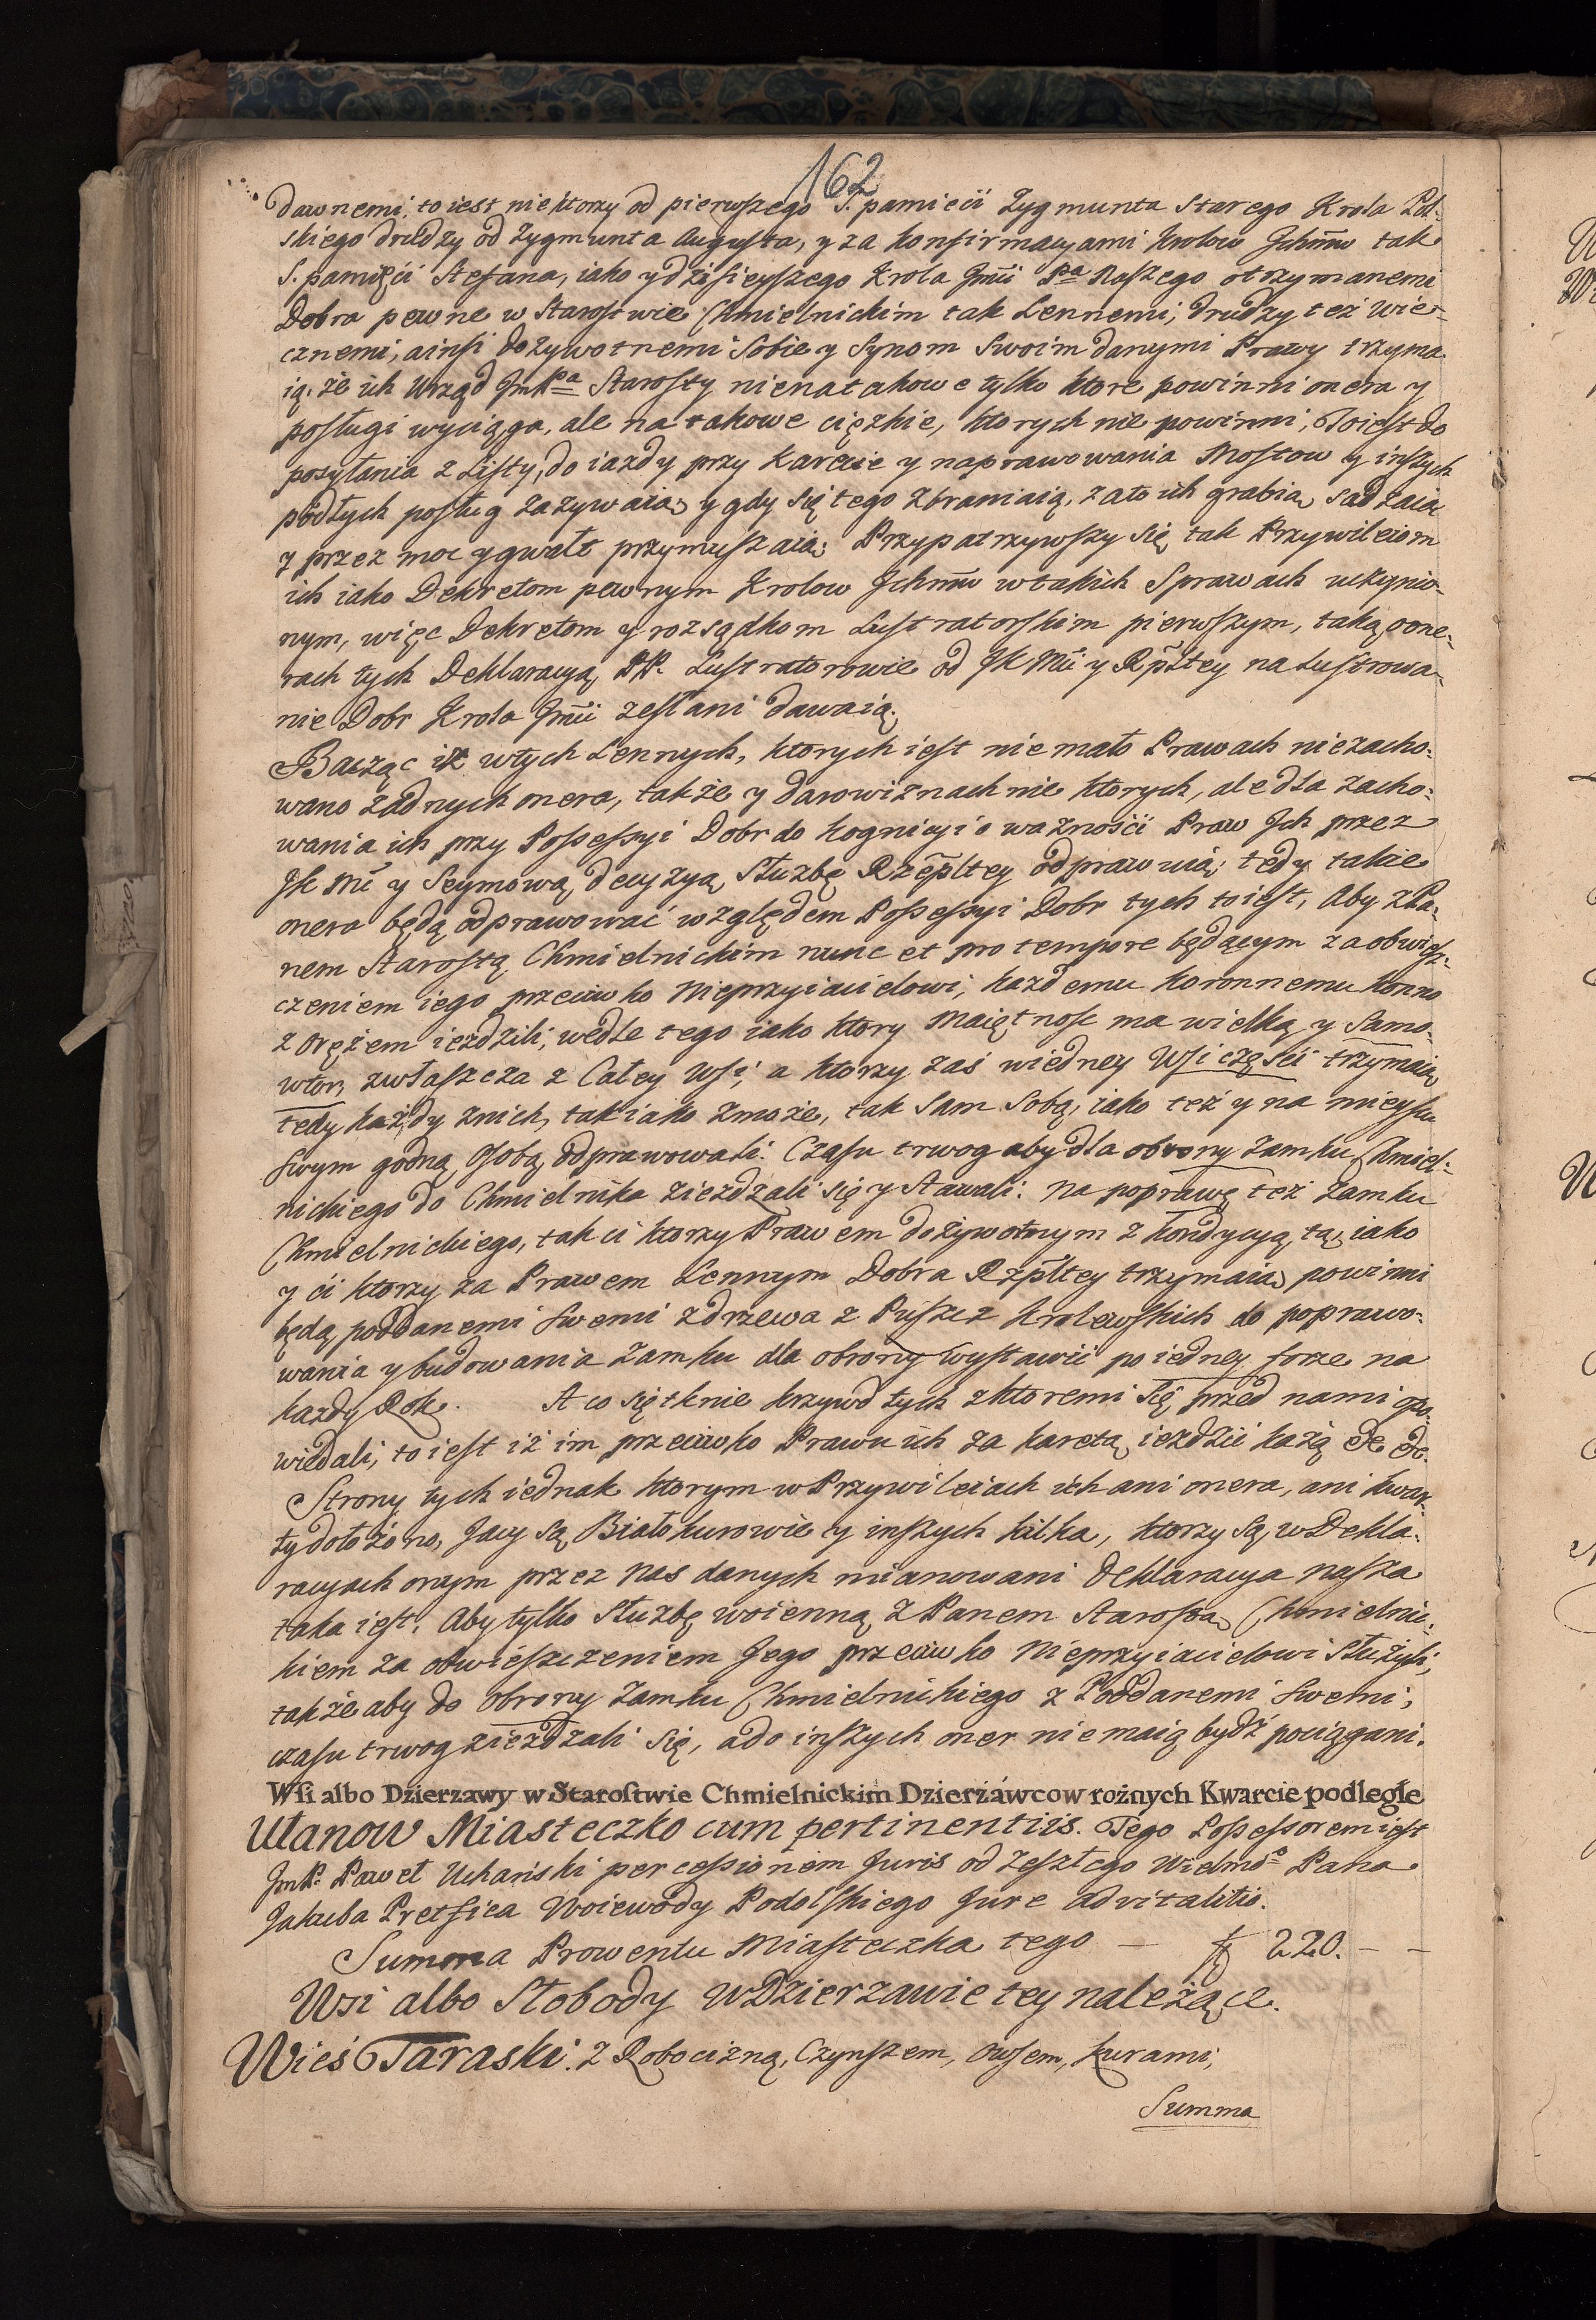 162
dawnemi, to iest niektorzy od pierwszego S. pamięci Zygmunta Starego Krola Pol-
skiego drudzy od Zygmunta Augusta, y za konfirmacyami Krolow Ichmw tak
S. pamięci Stefana, iako y dzisieyszego Krola Jmci Pa Naszego otrzymanemi
Dobra pewne w Starostwie Chmielnickim tak Lennemi, drudzy też wie-
cznemi, a insi dożywotnemi Sobie y Synom Swoim danymi Prawy trzyma-
ią, że ich Urząd JmPa Starosty nie na takowe tylko ktore powinni onera y
posługi wyciąga, ale na takowe cięzkie, ktorych nie powinni, To iest do
posyłania z Listy, do iazdy przy Karecie y naprawowania Mostow y inszych
podłych posług zazywaią, y gdy się tego zbraniaią, za to ich grabią, sadzaią
y przez moc y gwałt przymuszaią; Przypatrzywszy się tak Przywileiom
ich iako Dekretom pewnym Krolow Ichmw w takich Sprawach uczynio-
nym, więc Dekretom y rozsądkom Lustratorskim pierwszym, taką o one-
rach tych Deklaracyą PP. Lustratorowie od JK Mci y Rpltey na Lustrowa-
nie Dobr Krola Jmci zesłani dawaią.
Bacząc iż w tych Lennych, ktorych iest nie mało Prawach nie zacho-
wano żadnych onera, także y darowiznach nie ktorych, ale dla zacho-
wania ich przy Possessyi Dobr do kognicyi o ważności Praw Ich przez
JK Mć y Seymową decyzyą Służbę Rzepltey odprawuią; tedy takie
onera będą odprawować względem Possessyi Dobr tych to iest, Aby z Pa-
nem Starostą Chmielnickim nunc et pro tempore będącym za obwiesz-
czeniem iego przeciwko Nieprzyiacielowi, każdemu Koronnemu konno
z Orężem ieździli, wedle tego iako ktory Maiętnosc ma wielką y Samo-
wtor, zwłaszcza z Całey Wsi, a ktorzy zaś w iedney Wsi części trzymaią
tedy każdy z nich, tak iako zmoże, tak Sam Sobą, iako też y na mieyscu
swym godną Osobą odprawowali. Czasu trwog aby dla obrony Zamku Chmiel-
nickiego do Chmielnika zieżdzali się y Stawali. Na poprawę też Zamku
Chmielnickiego, tak ci ktorzy Prawem dożywotnym z Kondycyą tą, iako
y ci ktorzy za Prawem Lennym Dobra Rzpltey trzymaią, powinni
będą poddanemi swemi z drzewa z Puszcz Krolewskich do poprawo-
wania y budowania Zamku dla obrony wystawić po iedney forze na
każdy Rok. A co się tknie krzywd tych z ktoremi się przed nami opo-
wiedali, to iest iż im przeciwko Prawu ich za karetą ieździć każą &c &c.
Strony tych iednak ktorym w Przywileiach ich ani onera, ani kwar-
ty dołożono, Jacy są Białokurowie y inszych kilka, ktorzy są w Dekla-
racyach onym przez nas danych mianowani Deklaracya nasza
taka iest. Aby tylko Służbę woienną z Panem Starostą Chmielnic-
kiem za obwieszczeniem Jego przeciwko Nieprzyiacielowi Służyli,
także aby do Obrony Zamku Chmielnickiego z Poddanemi swemi,
czasu trwog zieżdzali się, a do inszych oner nie maią bydź pociągani.
Wsi albo Dzierzawy w Starostwie Chmielnickim Dzierzáwcow rożnych Kwarcie podległe
Ułanow Miasteczko cum pertinentiis. Tego Possessorem iest
JmP. Paweł Uchański per cessionem Juris od zeszłego Wielmo Pana
Jakuba Pretfica Woiewody Podolskiego Jure advitalitio.
Summa Prowentu Miasteczka tego — f 220. — —
Wsi albo Słobody w Dzierzawie tey należące.
Wieś Taraski. z Robocizną, Czynszem, Owsem, Kurami,
Summa